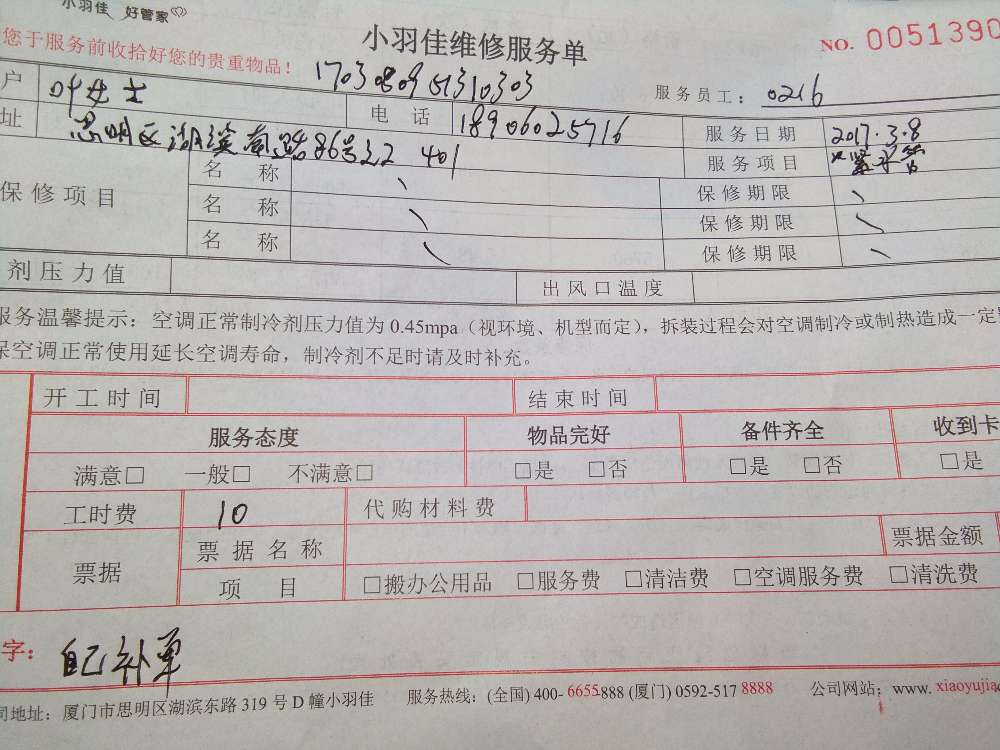 小羽佳 好管家
您于服务前收拾好您的贵重物品！
小羽佳维修服务单
NO. 0051390
户 叶女士 17030809151310303 服务员工： 0216
址 思明区湖滨南路86号22 401 电 话 18906025716 服务日期 2017.3.8
服务项目
保修项目 名 称 保修期限
名 称 保修期限
名 称 保修期限
剂压力值 出风口温度
服务温馨提示：空调正常制冷剂压力值为 0.45mpa（视环境、机型而定），拆装过程会对空调制冷或制热造成一定
保空调正常使用延长空调寿命，制冷剂不足时请及时补充。
开工时间 结束时间
服务态度 物品完好 备件齐全 收到卡
满意□ 一般□ 不满意□ □是 □否 □是 □否 □是
工时费 10 代购材料费
票据 票据名称 票据金额
项 目 □搬办公用品 □服务费 □清洁费 □空调服务费 □清洗费
字： 自己补单
司地址：厦门市思明区湖滨东路 319 号 D 幢小羽佳 服务热线：(全国) 400-6655-888 (厦门) 0592-517 8888 公司网站：www. xiaoyujia